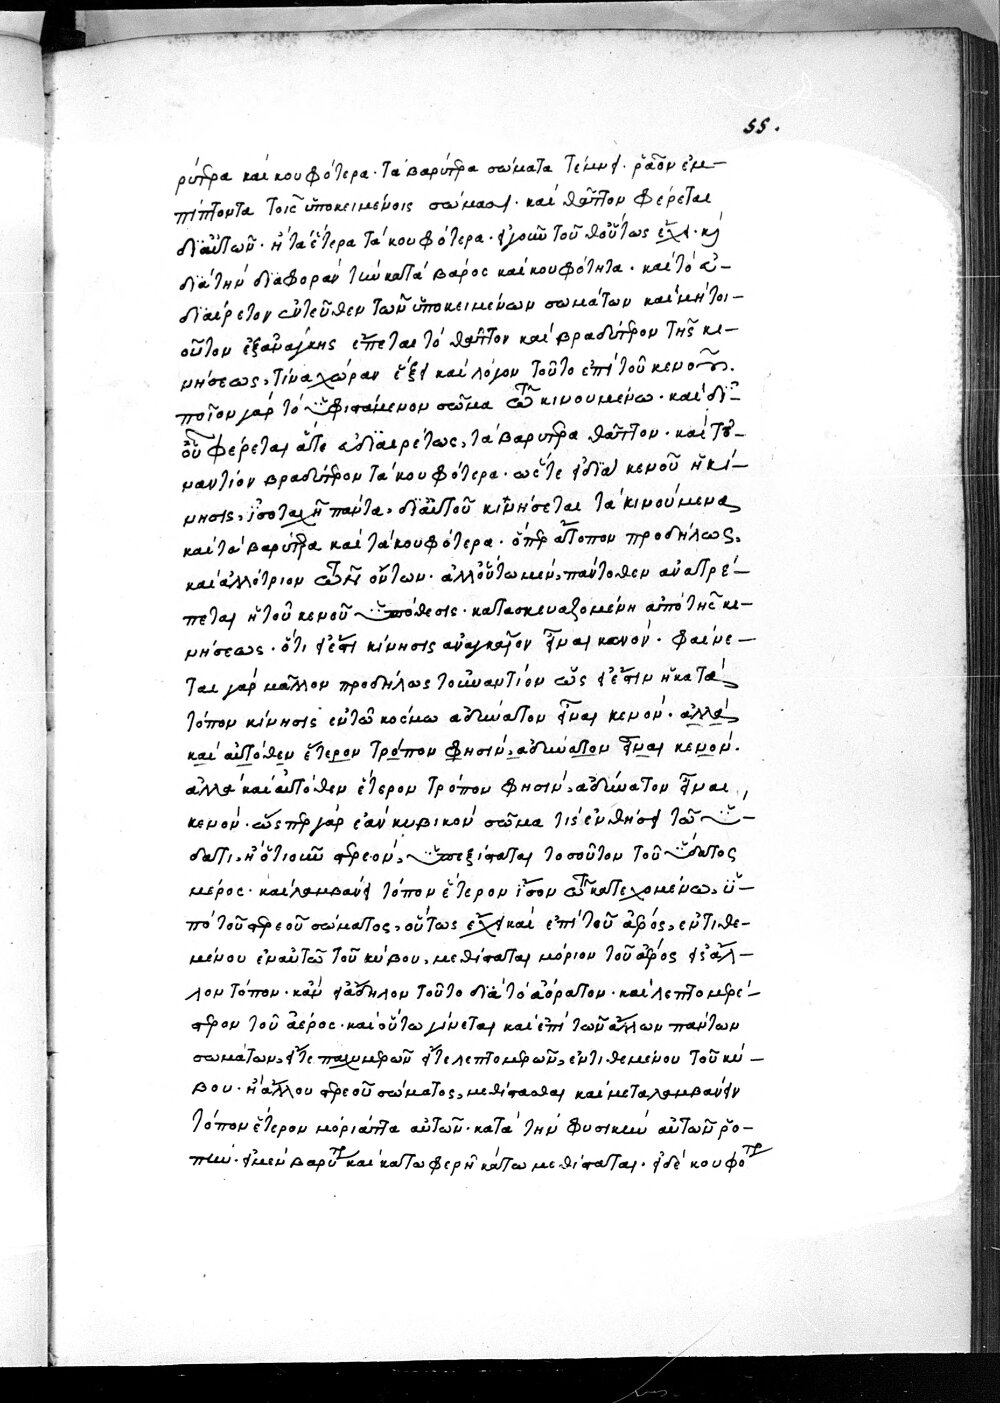 55.
ρύτερα καὶ κουφότερα· τὰ βαρύτερα σώματα τέμνει ῥᾶον ἐμ-
πίπτοντα τοῖς ὑποκειμένοις σώμασι· καὶ θᾶττον φέρεται
δι' αὐτῶν· ἢ τὰ ἕτερα τὰ κουφότερα· εἰ γοῦν τοῦθ' οὕτως ἔχει· καὶ
διὰ τὴν διαφορὰν τὴν κατὰ βάρος καὶ κουφότητα· καὶ τὸ δι-
διαίρετον ἐντεῦθεν τῶν ὑποκειμένων σωμάτων καὶ μὴ τοι-
οῦτον ἐξανάγκης ἕπεται τὸ θᾶττον καὶ βραδύτερον τῆς κι-
νήσεως, τίνα χώραν ἕξει καὶ λόγον τοῦτο ἐπὶ τοῦ κενοῦ.
ποῖον γὰρ τὸ ὑφιστάμενον σῶμα τῶ κινουμένω· καὶ δι'
οὗ φέρεται ὥστε διαιρέτως, τὰ βαρύτερα θᾶττον· καὶ τοὐ-
ναντίον βραδύτερον τὰ κουφότερα· ὥστε εἰ διὰ κενοῦ ἡ κί-
νησις, ἰσοταχῆ πάντα, δι' αὐτοῦ κινήσεται τὰ κινούμενα
καὶ τὰ βαρύτερα καὶ τὰ κουφότερα· ὅπερ ἄτοπον προδήλως,
καὶ ἀλλότριον τῶν ὄντων· ἀλλ' οὕτω μὲν, πάντοθεν ἀνατρέ-
πεται ἡ τοῦ κενοῦ ὑπόθεσις· κατασκευαζομένη ἀπὸ τῆς κι-
νήσεως· ὅτι εἰ ἔστι κίνησις ἀναγκαῖον εἶναι κενόν· φαίνε-
ται γὰρ μᾶλλον προδήλως τοὐναντίον ὡς εἰ ἔστιν ἡ κατὰ
τόπον κίνησις ἐν τῶ κόσμω ἀδύνατον εἶναι κενόν· ἀλλὰ
καὶ αὐτόθεν ἕτερον τρόπον φησὶν, ἀδύνατον εἶναι κενόν.
ἀλλὰ καὶ αὐτόθεν ἕτερον τρόπον φησὶν, ἀδύνατον εἶναι
κενόν· ὥσπερ γὰρ ἐὰν κυβικὸν σῶμα τὶς ἐνθήσει τῶ ὕ-
δατι, ἢ ὁτιοῦν στερεὸν, ὑπεξίσταται τοσοῦτον τοῦ ὕδατος
μέρος· καὶ λαμβάνει τόπον ἕτερον ἴσον τῶ κατεχομένω, ὑ-
πὸ τοῦ στερεοῦ σώματος, οὕτως ἔχει καὶ ἐπὶ τοῦ ἀέρος, ἐντιθε-
μένου ἐν αὐτῶ τοῦ κύβου, μεθίσταται μόριον τοῦ ἀέρος εἰς ἄλ-
λον τόπον· κἂν εἰ ἄδηλον τοῦτο διὰ τὸ ἀόρατον· καὶ λεπτομερέ-
στερον τοῦ ἀέρος· καὶ οὕτω γίνεται καὶ ἐπὶ τῶν ἄλλων πάντων
σωμάτων, εἴτε παχυμερῶν εἴτε λεπτομερῶν, ἐντιθεμένου τοῦ κύ-
βου· ἢ ἄλλου στερεοῦ σώματος, μεθίστασθαι καὶ μεταλαμβάνειν
τόπον ἕτερον μόρια ἄττα αὐτῶν· κατὰ τὴν φυσικὴν αὐτῶν ῥο-
πήν· εἰ μὲν βαρύτερα καὶ κατωφερῆ κάτω μεθίσταται· εἰ δὲ κουφότερα